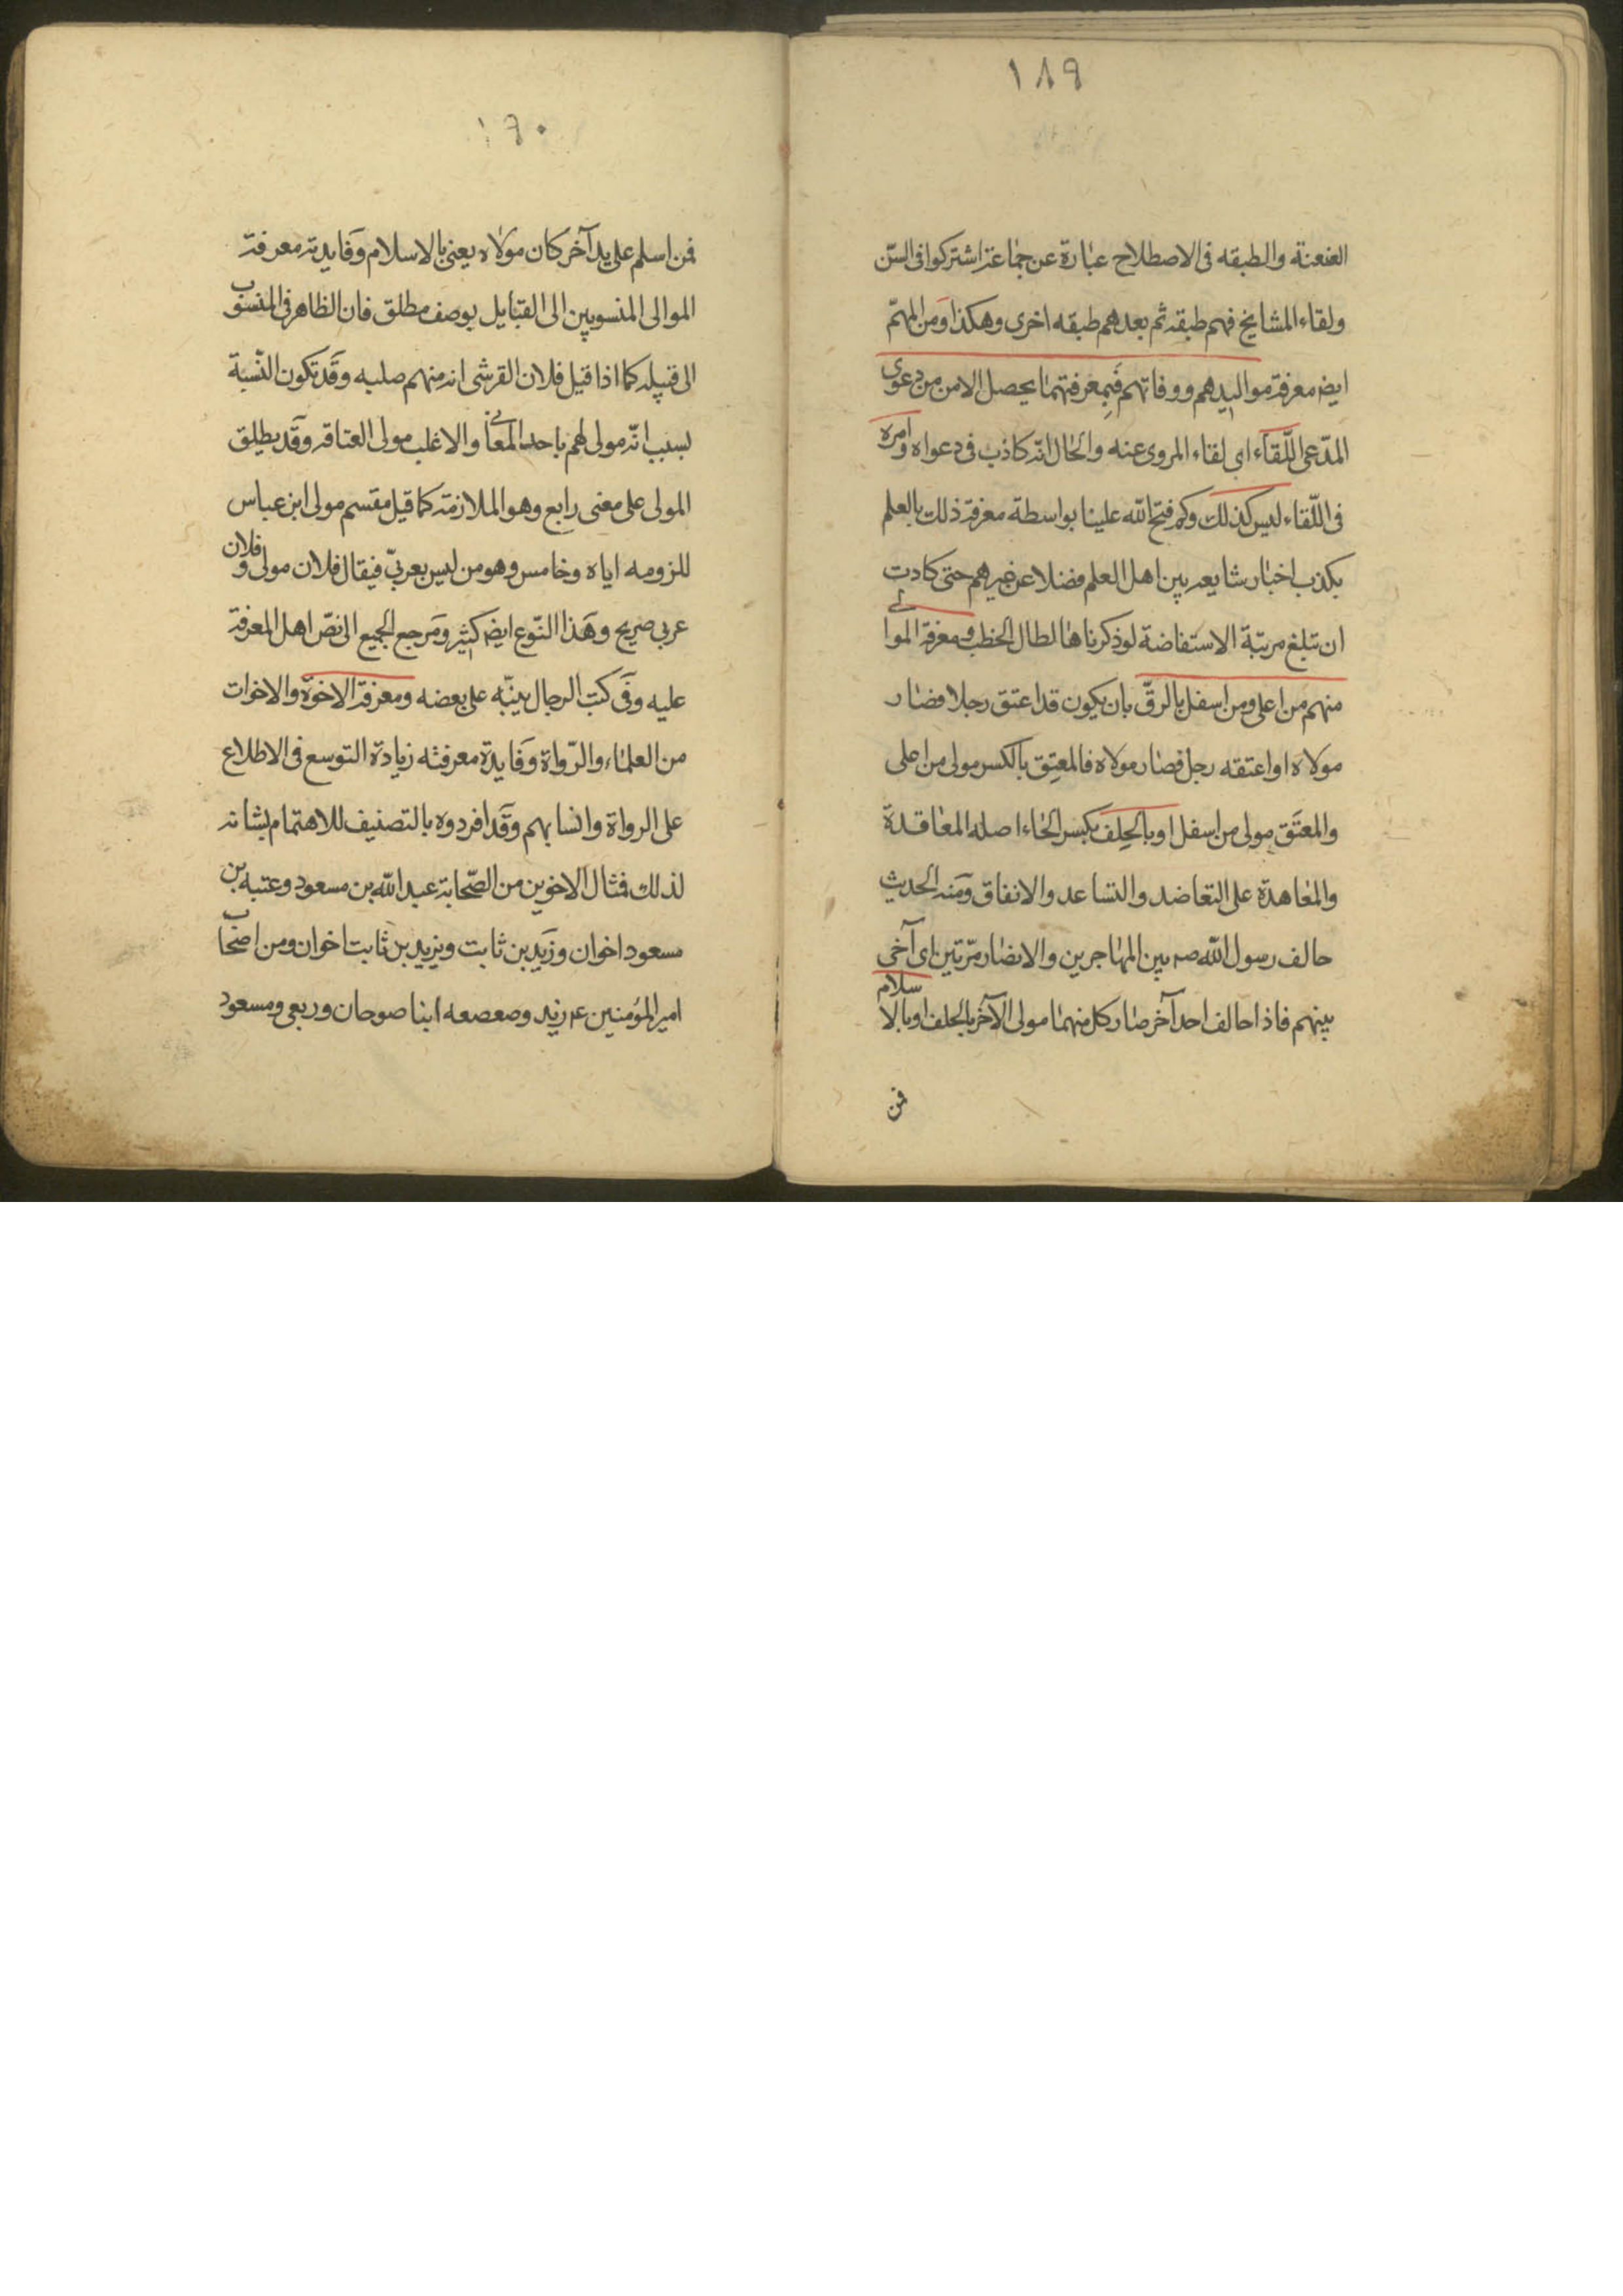 ١٨٩
العنعنة والطبقه فى الاصطلاح عبارة عن جماعة اشتركوا فى السّن
ولقاء المشايخ فهم طبقه ثم بعدهم طبقه اخرى وهكذا ومن المهمّ
ايضا معرفة مواليدهم ووفاتهم فبمعرفتهما يحصل الامن من دعوى
المدّعى اللّقاء اى لقاء المروى عنه والحال انّه كاذب فى دعواه وامره
فى اللّقاء ليس كذلك وكم فتح الله علينا بواسطة معرفة ذلك بالعلم
بكذب اخبار شايعه بين اهل العلم فضلا عن غيرهم حتى كادت
ان تبلغ مرتبة الاستفاضة لو ذكرناها لطال الخطب ومعرفة الموالى
منهم من اعلى ومن اسفل بالرقّ بان يكون قد اعتق رجلا فصار
مولاه او اعتقه رجل فصار مولاه فالمعتِق بالكسر مولى من اعلى
والمعتَق مولى من اسفل او بالحِلف بكسر الحاء اصله المعاقدة
والمعاهدة على التعاضد والتساعد والاتفاق ومنه الحديث
حالف رسول الله صم بين المهاجرين والانصار مرّتين اى آخى
بينهم فاذا حالف احد آخر صار كل منهما مولى الآخر بالحلف او بالاسلام
فمن
١٩٠
فمن اسلم على يد آخر كان مولاه يعنى بالاسلام وفايدته معرفة
الموالى المنسوبين الى القبايل بوصف مطلق فان الظاهر فى المنسوب
الى قبيله كما اذا قيل فلان القرشى انه منهم صلبيه وقد تكون النّسبة
بسبب انّه مولى لهم باحد المعانى والاغلب مولى العتاقه وقد يطلق
المولى على معنى رابع وهو الملازمة كما قيل مقسم مولى ابن عباس
للزومه اياه وخامس وهو من ليس بعربىّ فيقال فلان مولى وفلان
عربى صريح وهذا النّوع ايضا كثير ومرجع الجميع الى نصّ اهل المعرفة
عليه وفى كتب الرجال ينبّه على بعضه ومعرفة الاخوة والاخوات
من العلماء والرّواة وفايدة معرفته زيادة التوسع فى الاطلاع
على الرواة وانسابهم وقد افردوه بالتصنيف للاهتمام بشانه
لذلك فمثال الاخوين من الصّحابة عبد الله بن مسعود وعتبه بن
مسعود اخوان وزيد بن ثابت ويزيد بن ثابت اخوان ومن اصحاب
امير المؤمنين عم زيد وصعصعه ابنا صوحان وربعى ومسعود